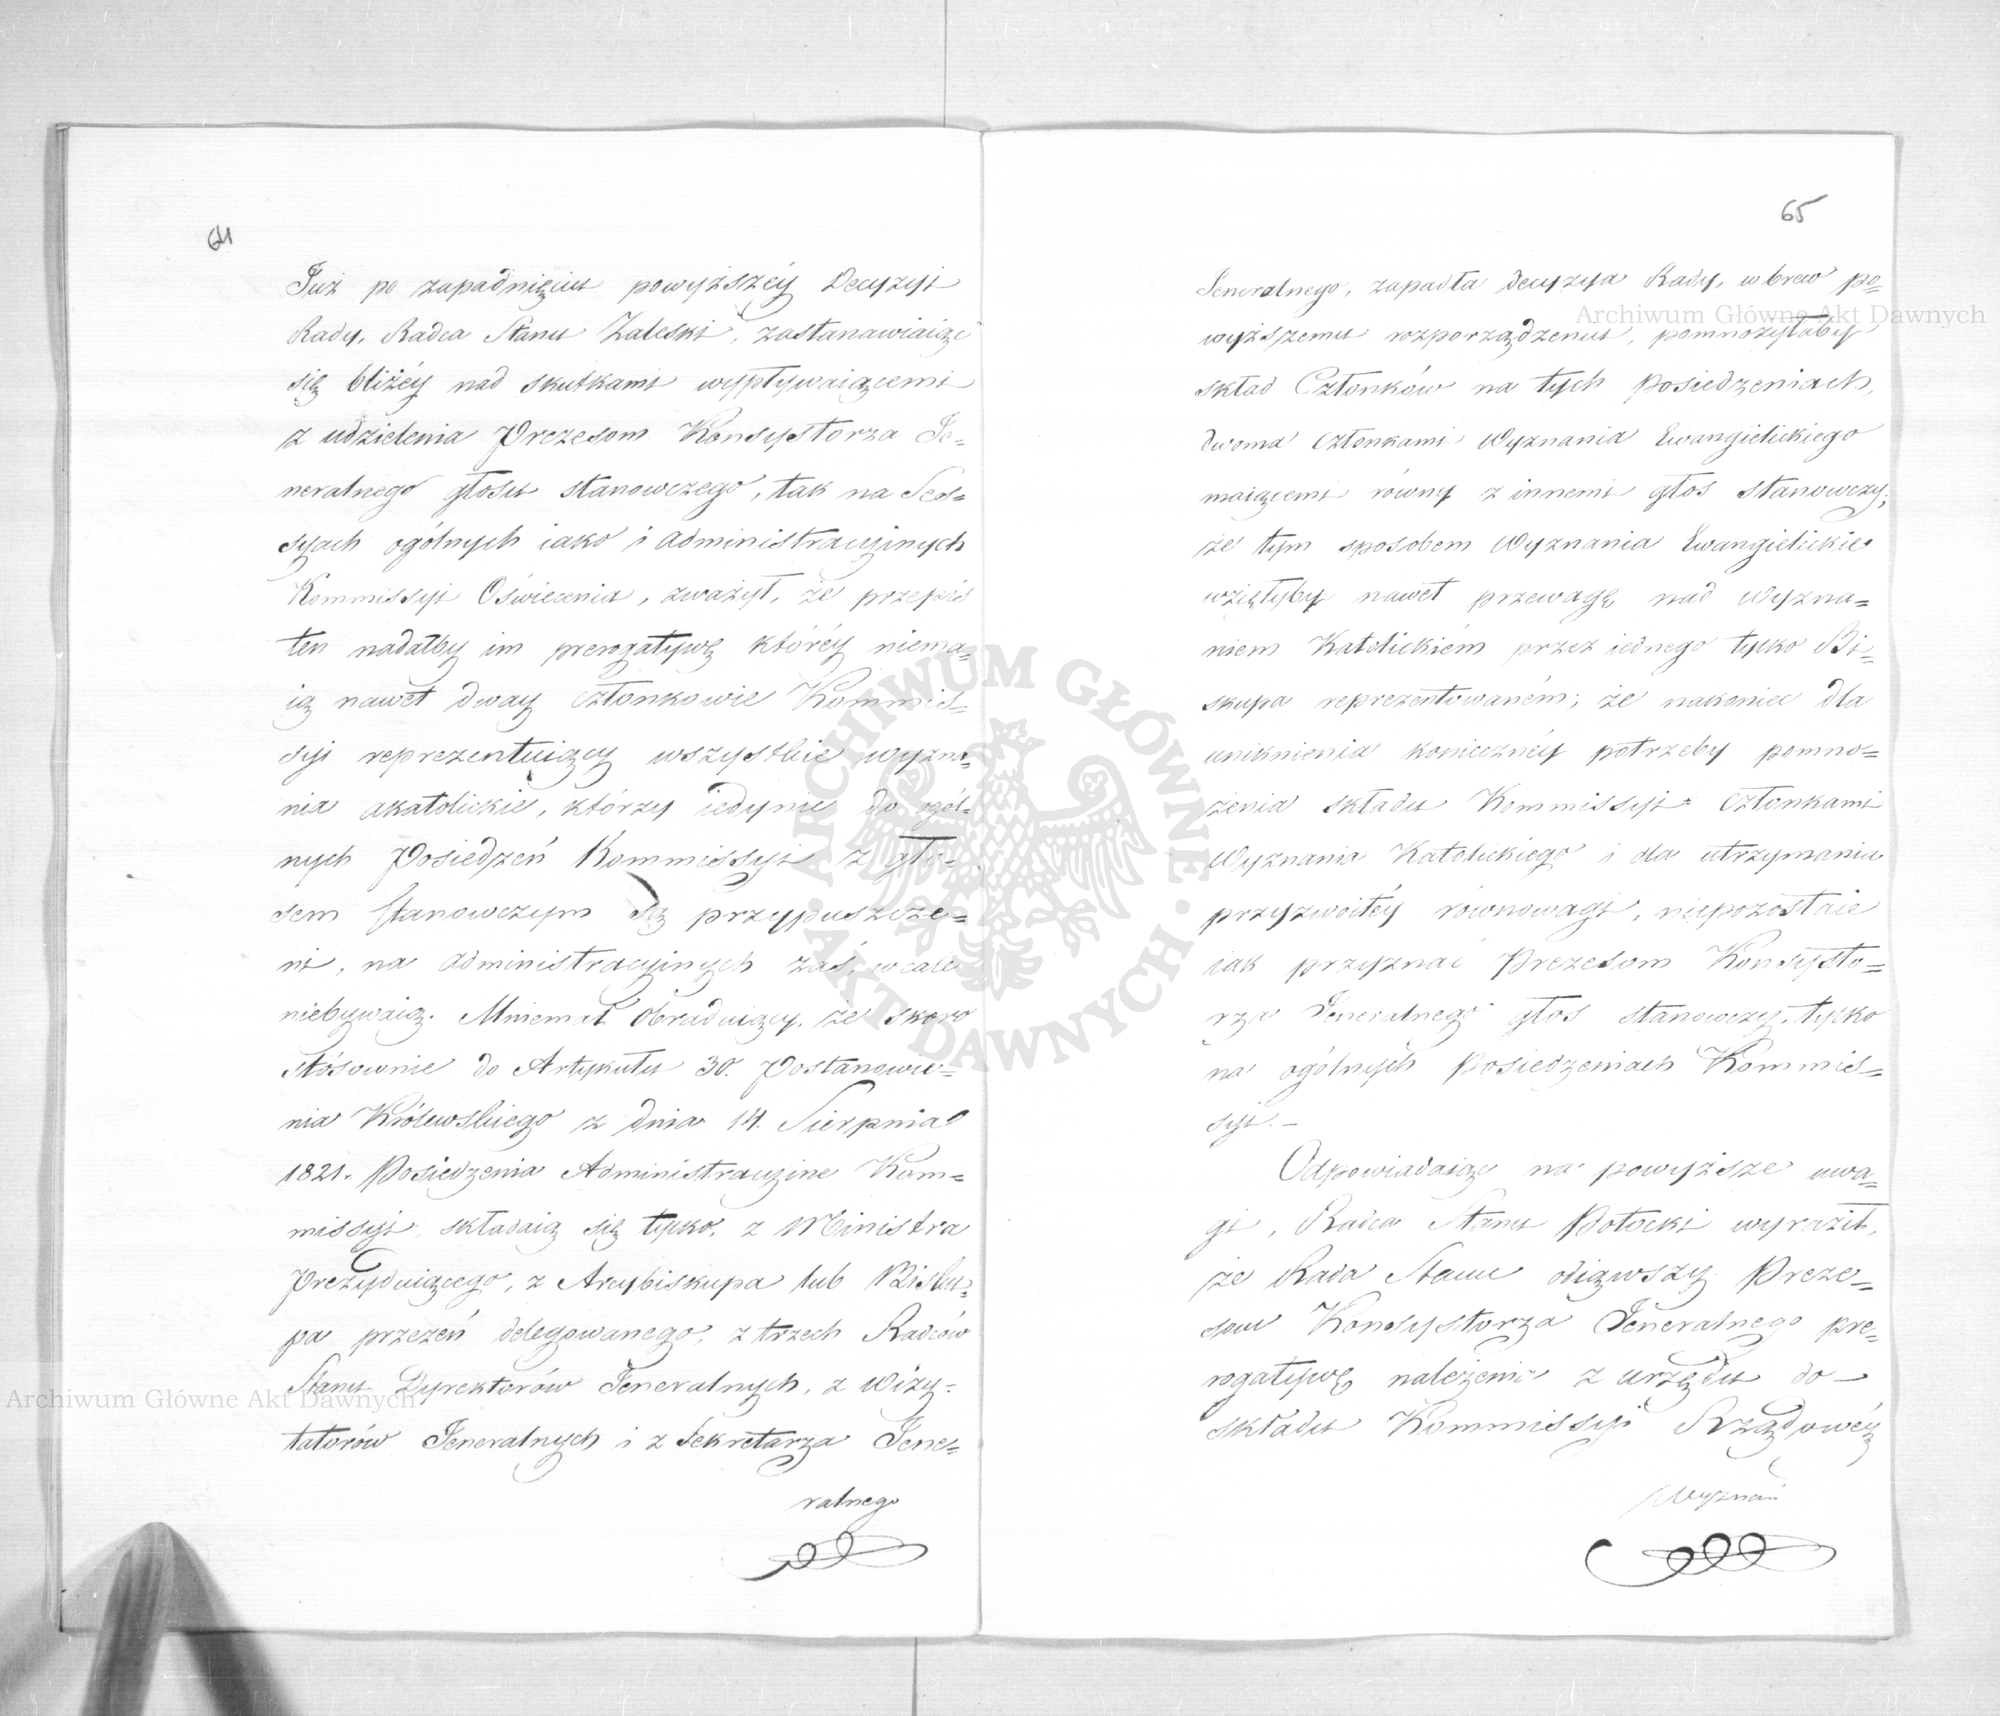 64
Już po zapadnięciu powyższéy Decyzyi
Rady, Radca Stanu Zaleski, zastanawiaiąc
się bliżéy nad skutkami wypływaiącemi
z udzielenia Prezesom Konsystorza Je=
neralnego głosu stanowczego, tak na Ses=
syach ogólnych iako i administracyinych
Kommissyi Oświecenia, zważył, że przepis
ten nadałby im prerogatywę któréy niema=
ią nawet dway członkowie Kommis=
syi reprezentuiący wszystkie wyzna=
nia akatolickie, którzy iedynie do ogól=
nych Posiedzeń Kommissyi z gło=
sem stanowczym są przypuszcze=
ni, na administracyinych zaś, wcale
niebywaią. Mniemał Obraduiący, że skoro
stósownie do Artykułu 30. Postanowie=
nia Królewskiego z dnia 14. Sierpnia
1821. Posiedzenia Administracyine Kom=
missyi składaią się tylko, z Ministra
Prezyduiącego, z Arcybiskupa lub Bisku=
pa przezeń delegowanego, z trzech Radców
Stanu Dyrektorów Jeneralnych, z Wizy=
tatorów Jeneralnych i z Sekretarza Jene=
ralnego
65
Jeneralnego, zapadła decyzya Rady, wbrew po=
wyższemu rozporządzeniu, pomnożyłaby
skład Członków na tych Posiedzeniach,
dwoma członkami Wyznania Ewangielickiego
maiącemi równy z innemi głos stanowczy;
że tym sposobem Wyznania Ewangielickie
wzięłyby nawet przewagę nad Wyzna=
niem Katolickiém przez iednego tylko Bi=
skupa reprezentowaném; że nakoniec dla
uniknienia koniecznéy potrzeby pomno=
żenia składu Kommissyi członkami
Wyznania Katolickiego i dla utrzymania
przyzwoitéy równowagi, niepozostaie
iak przyznać Prezesom Konsysto=
rza Jeneralnego głos stanowczy, tylko
na ogólnych Posiedzeniach Kommis=
syi. —
Odpowiadaiąc na powyższe uwa=
gi, Radca Stanu Potocki wyraził,
że Rada Stanu odiąwszy Preze=
som Konsystorza Jeneralnego pre=
rogatywę należenia z urzędu do —
składu Kommissyi Rządowéy
Wyznań
Archiwum Główne Akt Dawnych
Archiwum Główne Akt Dawnych
ARCHIWUM GŁÓWNE
AKT DAWNYCH